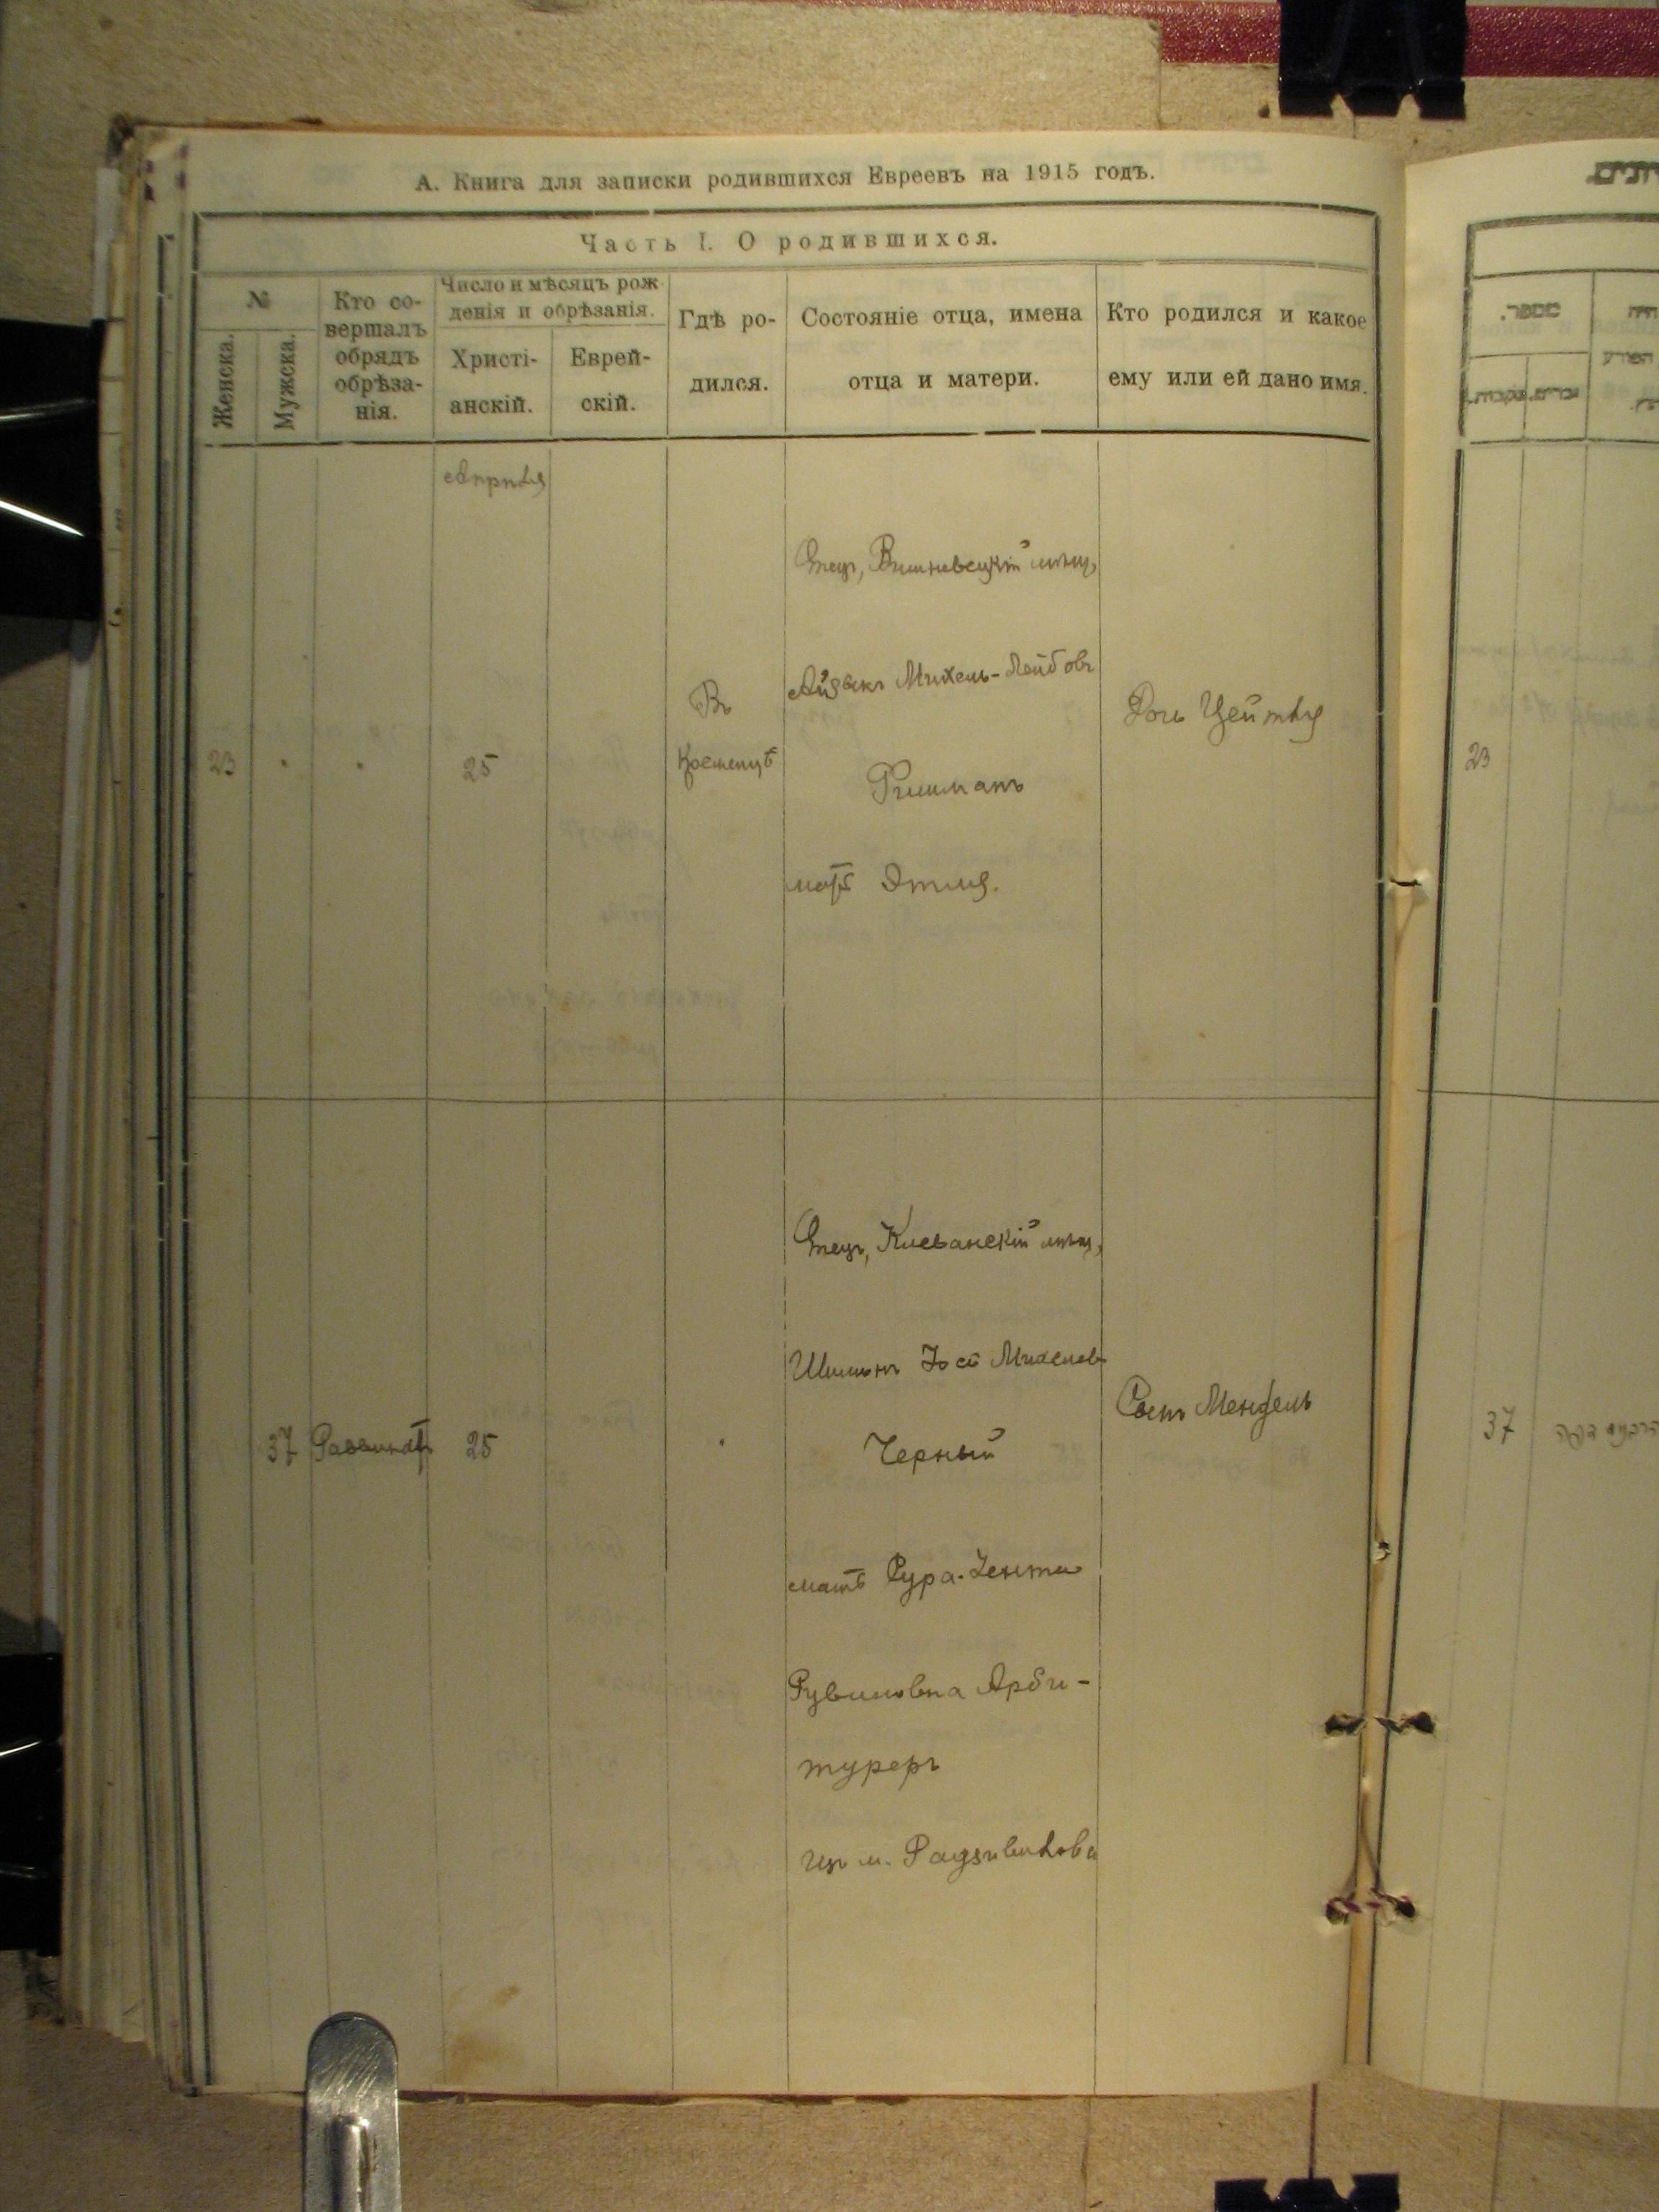 А. Книга для записки родившихся Евреевъ на 1915 годъ.
Часть I. О родившихся.
№
Женска.
Мужска.
Кто со-
вершалъ
обрядъ
обрѣза-
нія.
Число и мѣсяцъ рож-
денія и обрѣзанія.
Христі-
анскій.
Еврей-
скій.
Гдѣ ро-
дился.
Состояніе отца, имена
отца и матери.
Кто родился и какое
ему или ей дано имя.
Апрѣля
23
25
Въ
Кременцѣ
Отецъ, Вишневецкій мѣщ.
Айзыкъ Михель-Лейбовъ
Фишманъ
мать Этля.
Дочь Цейтля
37
25
Отецъ, Клеванскій мѣщ,
Шимонъ Іось Михелевъ
Черный
мать Сура-Јента
Рувиновна Арби-
туреръ
изъ м. Радзивилова
Сынъ Мендель
מספר.
23
37